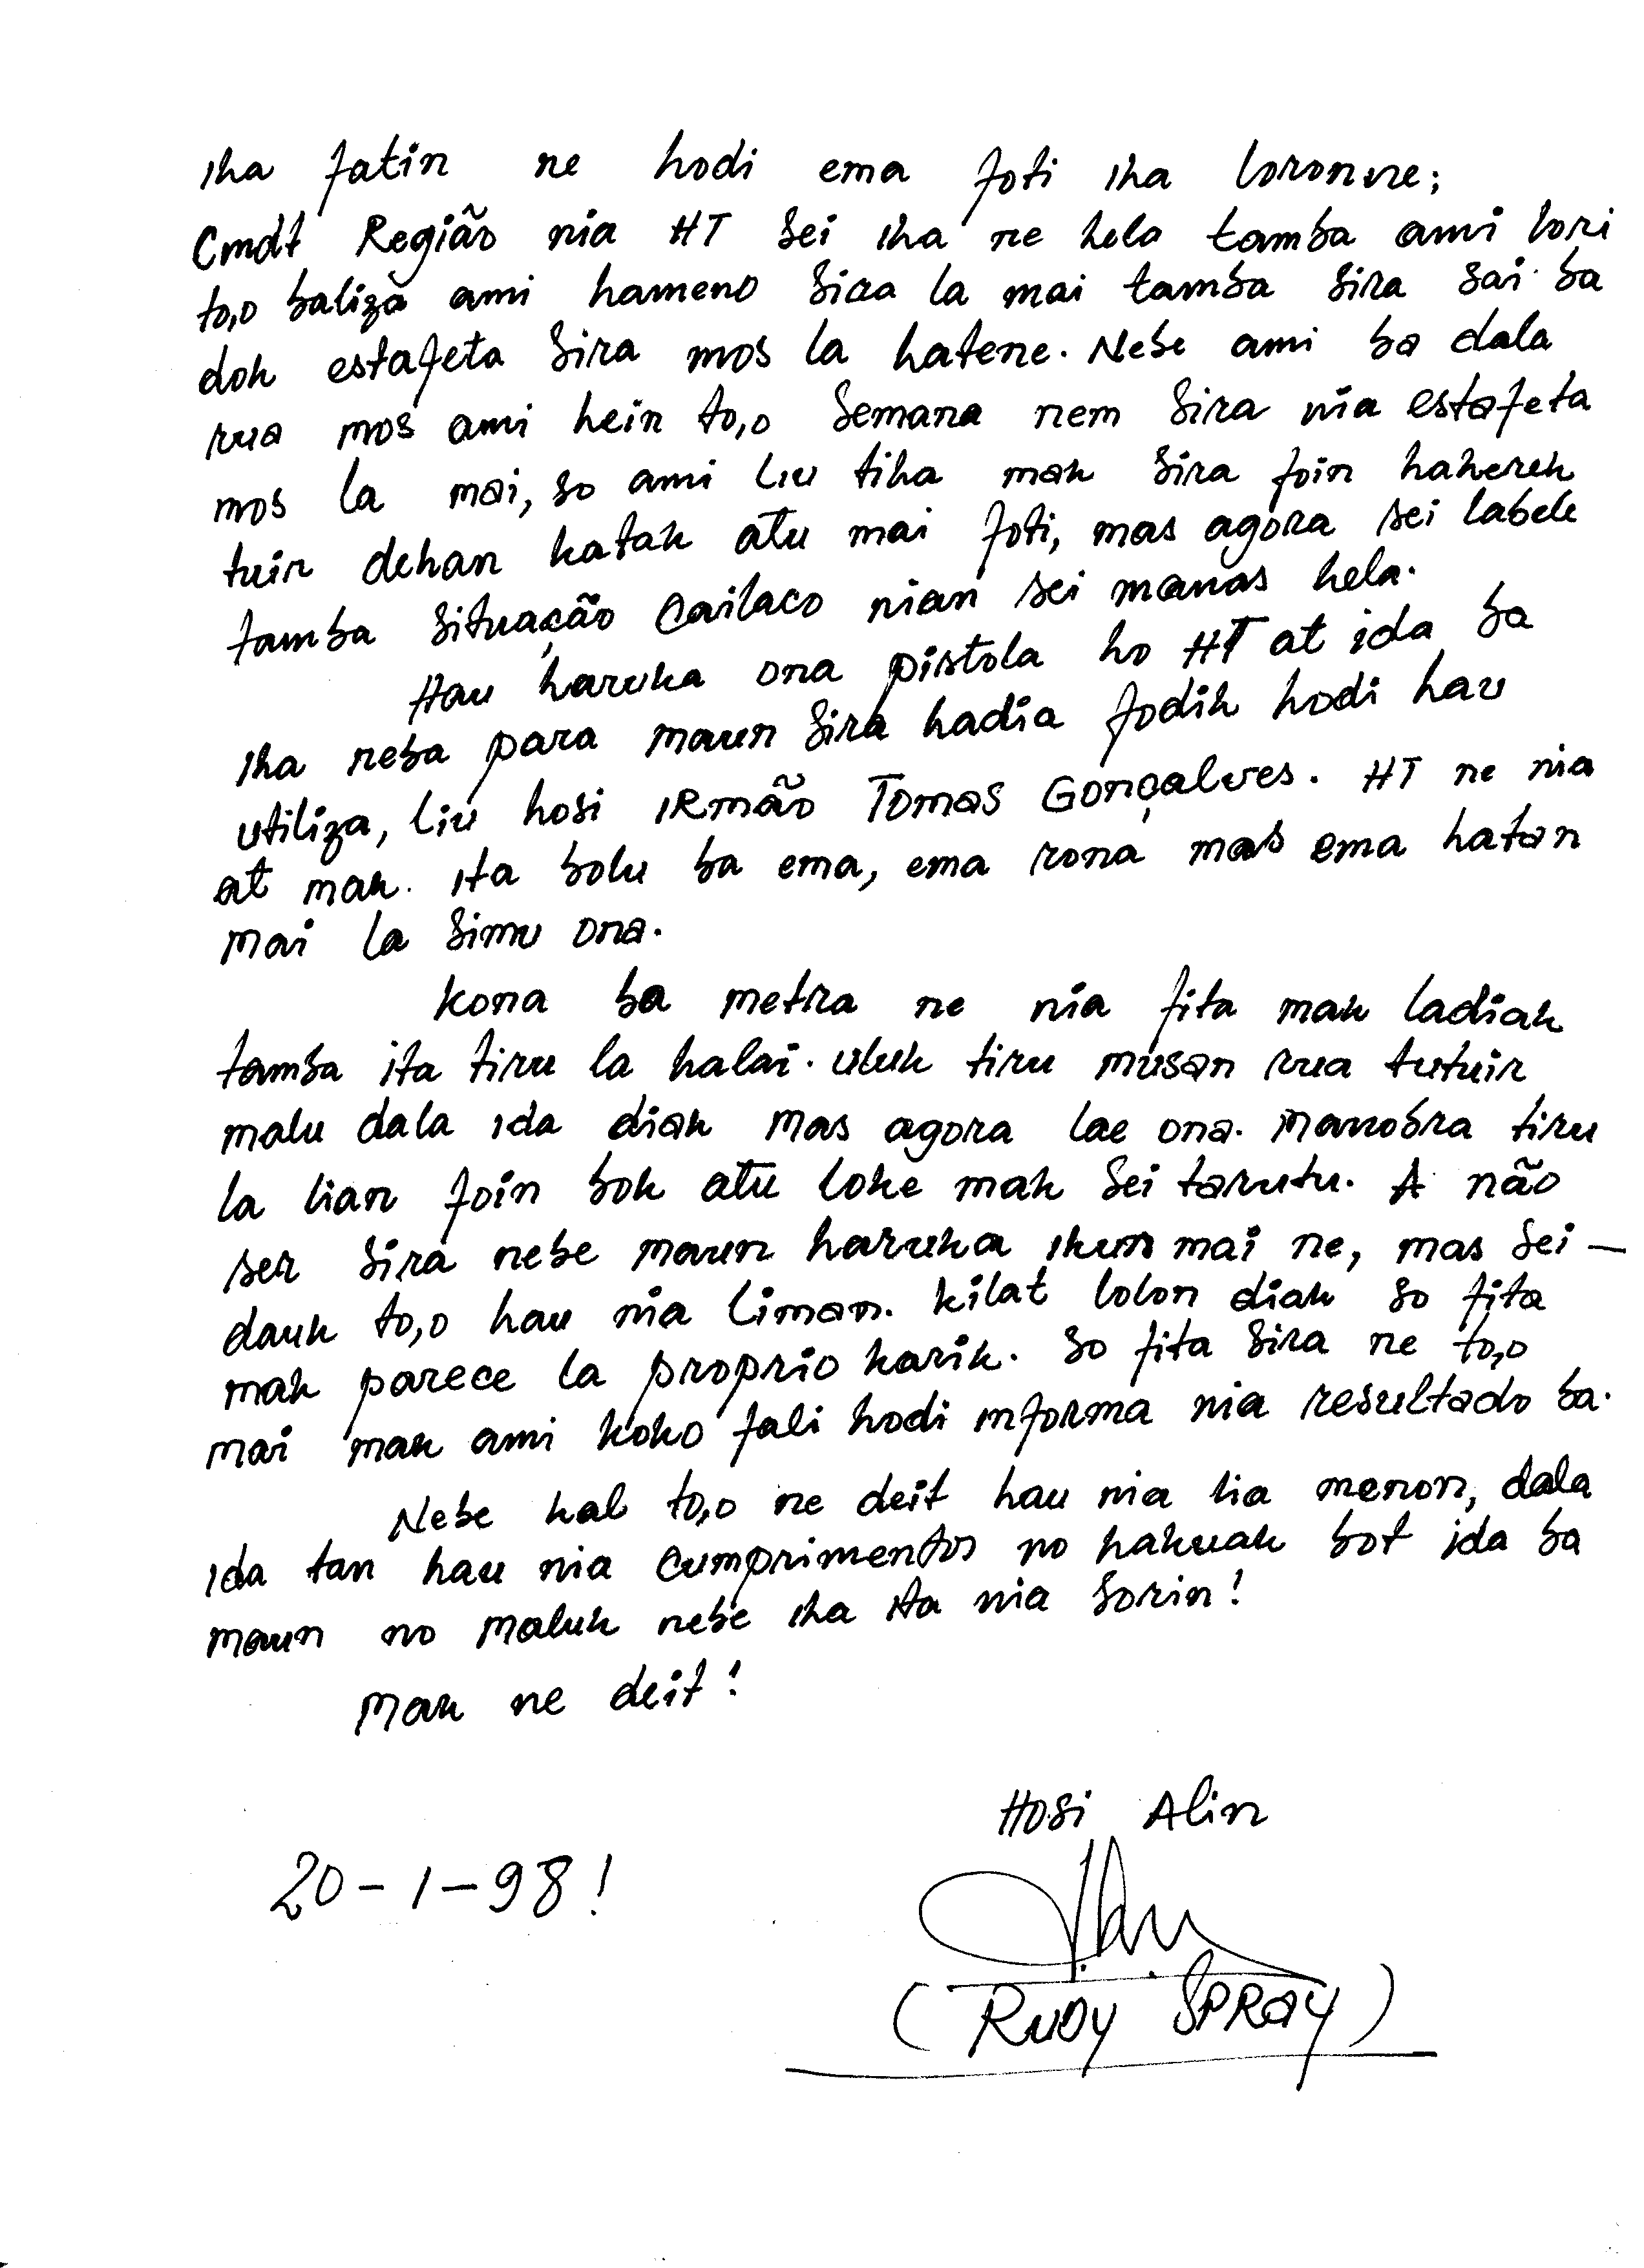 iha fatin ne hodi ema foti iha loron ne;
Cmdt Região nia HT sei iha ne hela tamba ami lori
to,o baliza ami hameno sira la mai tamba sira sai ba
dok estafeta sira mos la hatene. Nebe ami ba dala
rua mos ami hein to,o semana nem sira nia estafeta
mos la mai, so ami liu tiha mak sira foin hakerek
tuir dehan katak atu mai foti, mas agora sei labele
tamba situação Cailaco nian sei manas hela.
Hau haruka ona pistola ho HT at ida ba
iha neba para maun sira hadia fodik hodi hau
utiliza, liu hosi IRmão Tomas Gonçalves. HT ne nia
at mak. ita bolu ba ema, ema rona mas ema hatan
mai la simu ona.
Kona ba metra ne nia fita mak ladiak
tamba ita tiru la halai. uluk tiru musan rua tutuir
malu dala ida diak mas agora lae ona. Manobra tiru
la lian foin bok atu loke mak sei tarutu. A não
ser sira nebe maun haruka ikun mai ne, mas sei-
dauk to,o hau nia liman. Kilat lolon diak so fita
mak parece la proprio karik. So fita sira ne to,o
mai mak ami koko fali hodi informa nia resultado ba.
Nebe kal to,o ne deit hau nia lia menon, dala
ida tan hau nia cumprimentos no hakuak bot ida ba
maun no maluk nebe iha ita nia sorin!
Mak ne deit!
Hosi Alin
20-1-98!
(RUDY SPRAY)